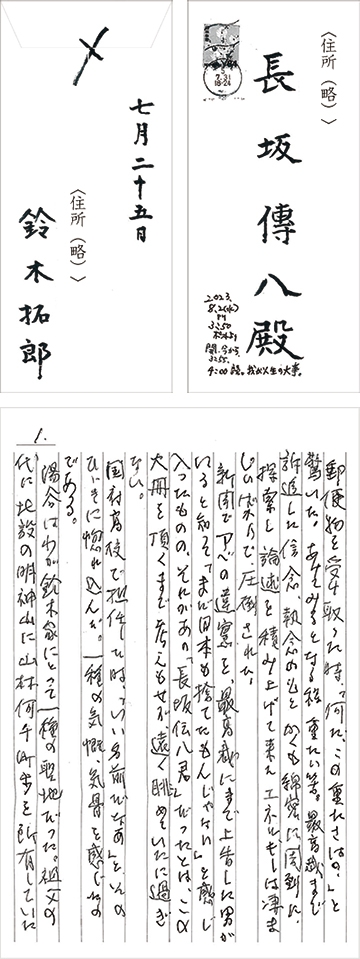 〈住所（略）〉
長坂傳八殿
7.31
18-24
2023.
8.2(水)
PM
3:50
4:00 読。我が人生の大事。
七月二十五日
〈住所（略）〉
鈴木拓郎
1.
郵便物を受け取った時、「何だ、この重たさは。」と
驚いた。あけてみるとなる程重たい筈。最高裁まで
訴追した信念、執念のもと、かくも綿密に周到に、
探索し論述を積み上げて来たエネルギーは凄ま
じいばかりで圧倒された。
新聞でアベの違憲を、最高裁にまで上告した男が
いると知って「まだ日本も捨てたもんじゃない」と感じ
入ったものの、それがあの「長坂伝八君」だったとは、この
大冊を頂くまで考えもせず遠く眺めていたに過ぎ
ない。
国村高校で担任した時、「いい名前だなあ」といんの
ひびきに惚れ込んだ。一種の気慨、気骨を感じたの
である。
湯谷はわが鈴木家にとって一種の聖地だった。祖父の
代に北設の明神山に山林何千町歩を所有していた